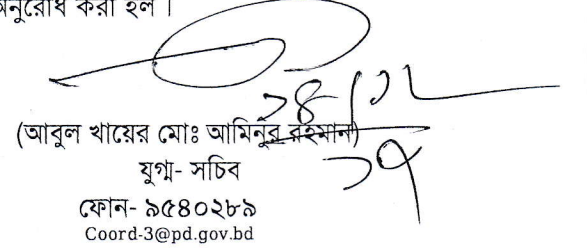 অনুরোধ করা হল ।
১৪/১২
(আবুল খায়ের মোঃ আমিনুর রহমান)
১৭
যুগ্ম- সচিব
ফোন- ৯৫৪০২৮৯
Coord-3@pd.gov.bd